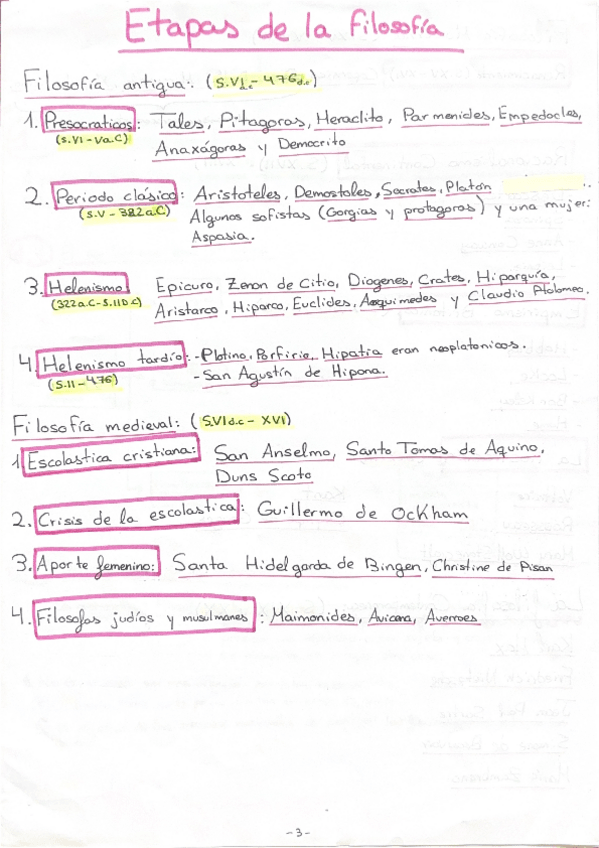 Etapas de la filosofía
Filosofía antigua: (S.VI d.c - 476 d.c)
1. Presocraticos: Tales, Pitagoras, Heraclito, Parmenides, Empedocles,
(s.VI - Va.C) Anaxágoras y Democrito
2. Periodo clásico: Aristoteles, Demostoles, Socrates, Platón
(s.V - 322a.C) Algunos sofistas (Gorgias y protagoras) y una mujer:
Aspasia.
3. Helenismo Epicuro, Zenon de Citio, Diogenes, Crates, Hiparquía,
(322a.C-S.IID.C) Aristarco, Hiparco, Euclides, Arquimedes y Claudio Ptolomeo.
4. Helenismo tardío: -Plotino, Porfirio, Hipatia eran neoplatonicos.
(S.II - 476) - San Agustín de Hipona.
Filosofía medieval: (S.VI d.c - XVI)
1 Escolastica cristiana: San Anselmo, Santo Tomas de Aquino,
Duns Scoto
2. Crisis de la escolastica: Guillermo de Ockham
3. Aporte femenino: Santa Hidelgarda de Bingen, Christine de Pisan
4. Filosofos judíos y musulmanes: Maimonides, Avicena, Averroes
-3-